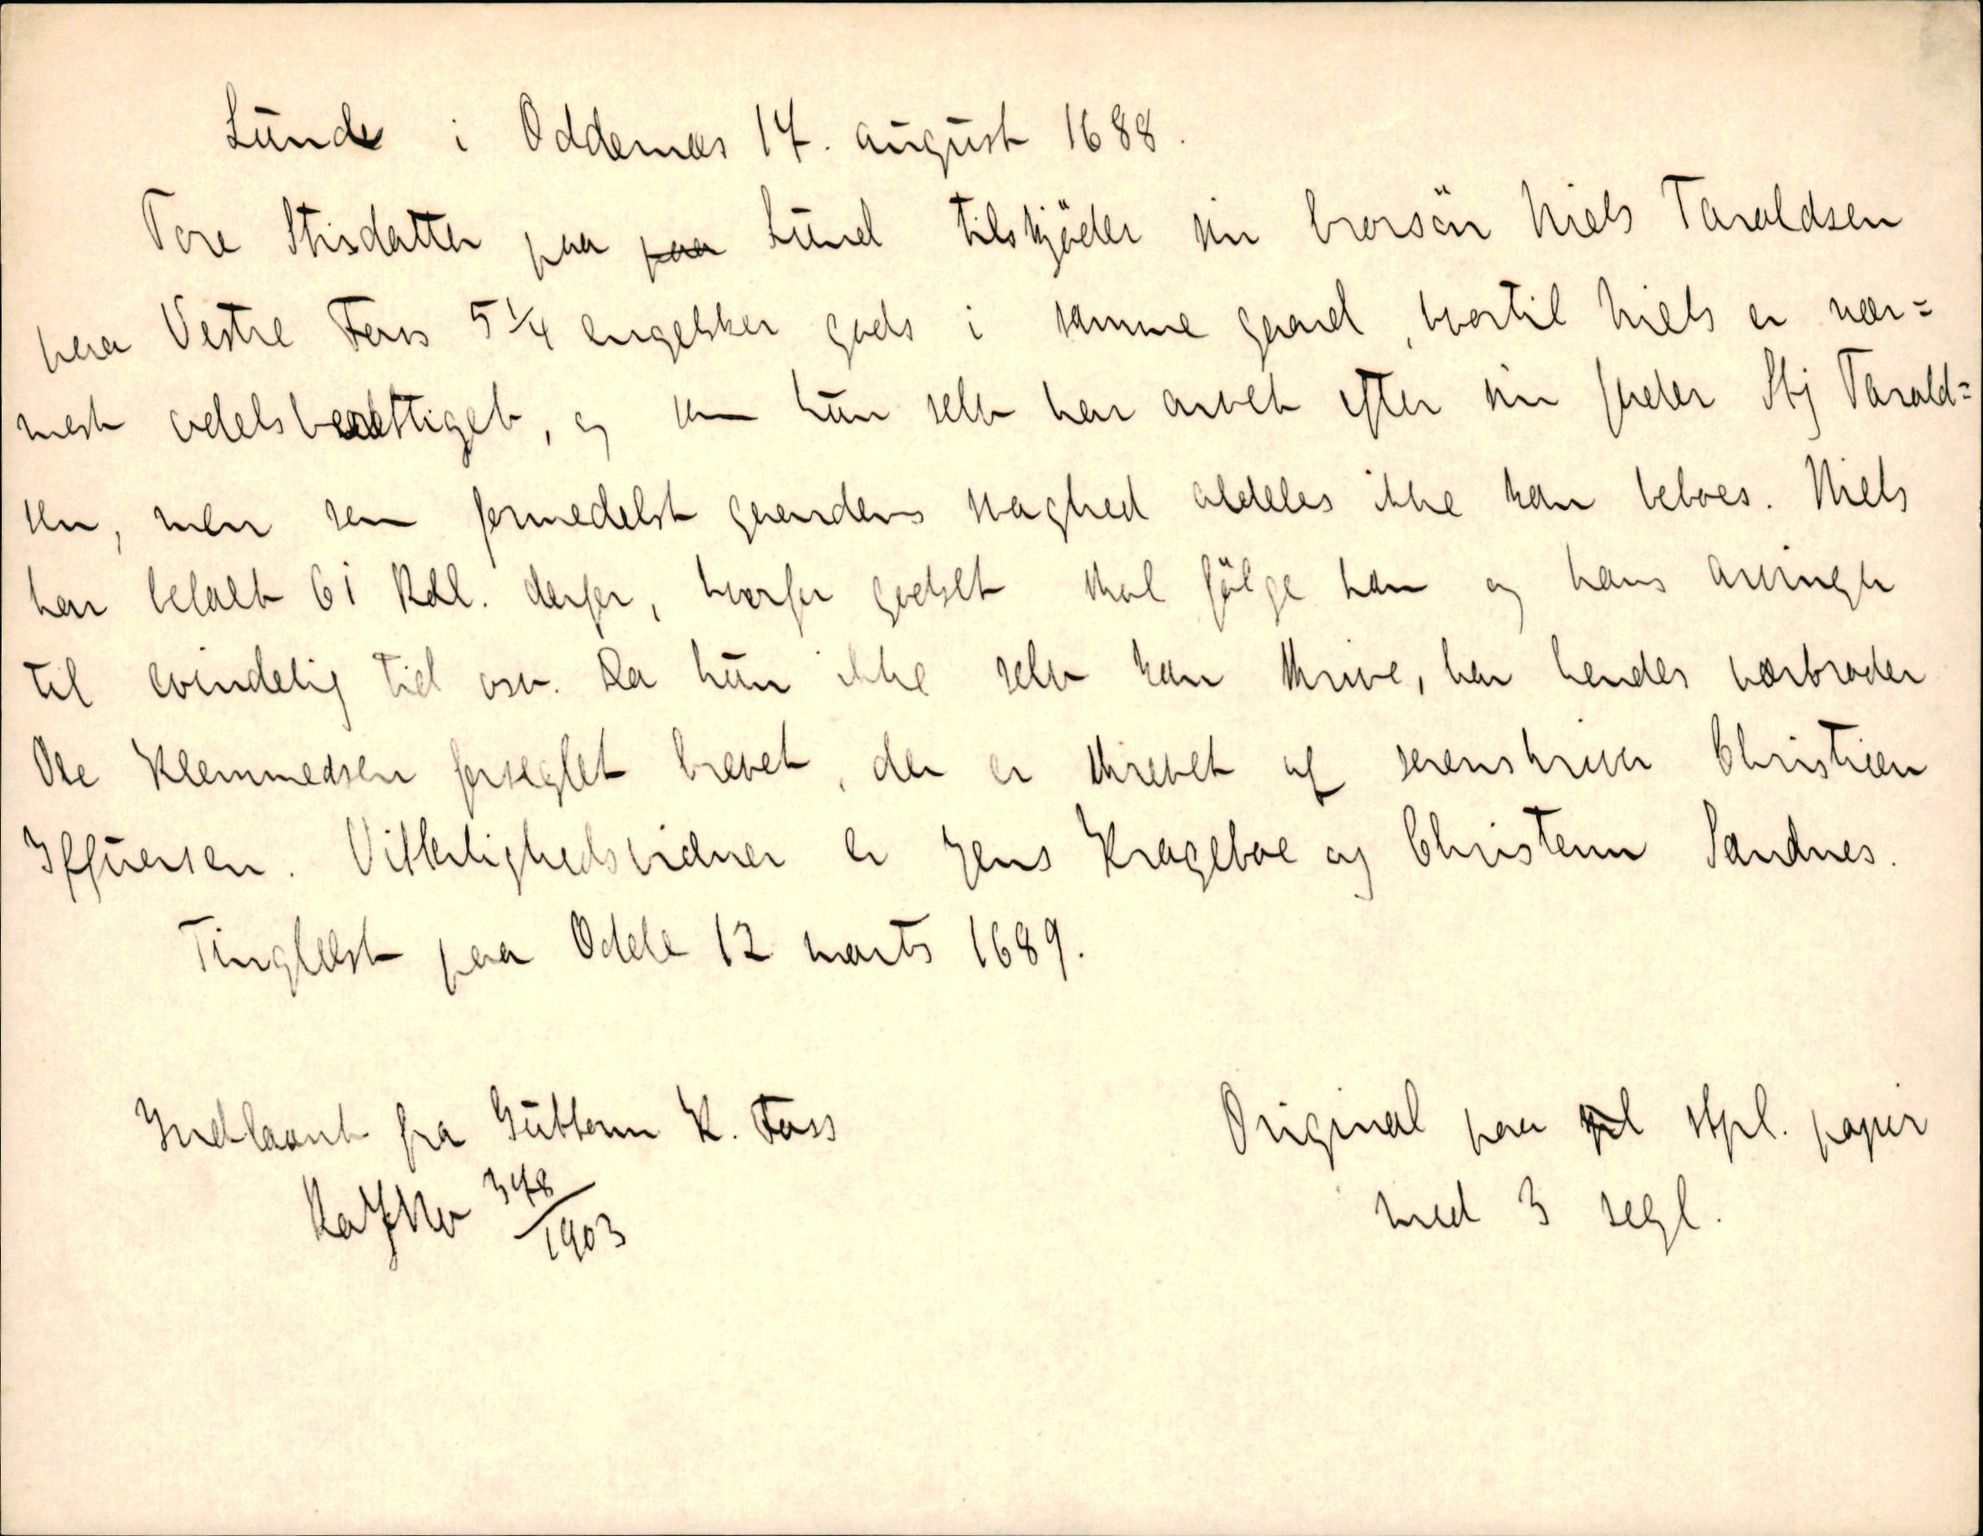 Lunde i Oddernæs 17. august 1688.
Tore Stisdatter paa paa Lund tilskjöder sin brorsön Niels Taraldsen
paa Vestre Foss 5 1/4 engelsker gods i samme gaard, hvortil Niels er nær=
mest odelsberettiget, og som hun selv har arvet efter sin fader Stj Tarald=
sen, men som formedelst gaardens svaghed aldeles ikke kan beboes. Niels
har betalt 61 Rdl. derfor, hvorfor godset skal fölge ham og hans arvinger
til evindelig tid osv. Da hun ikke selv kan skrive, har hendes værbroder
Ole Klemmedsen forseglet brevet, der er skrevet af sorenskriver Christian
Iffuersen. Vitterlighedsvidner er Jens Krageboe og Christenn Sandnes.
Tinglæst paa Odde 12 marts 1689.
Indlaant fra Guttorm K. Foss
348/1903
Original paa stpl. papir
med 3 segl.